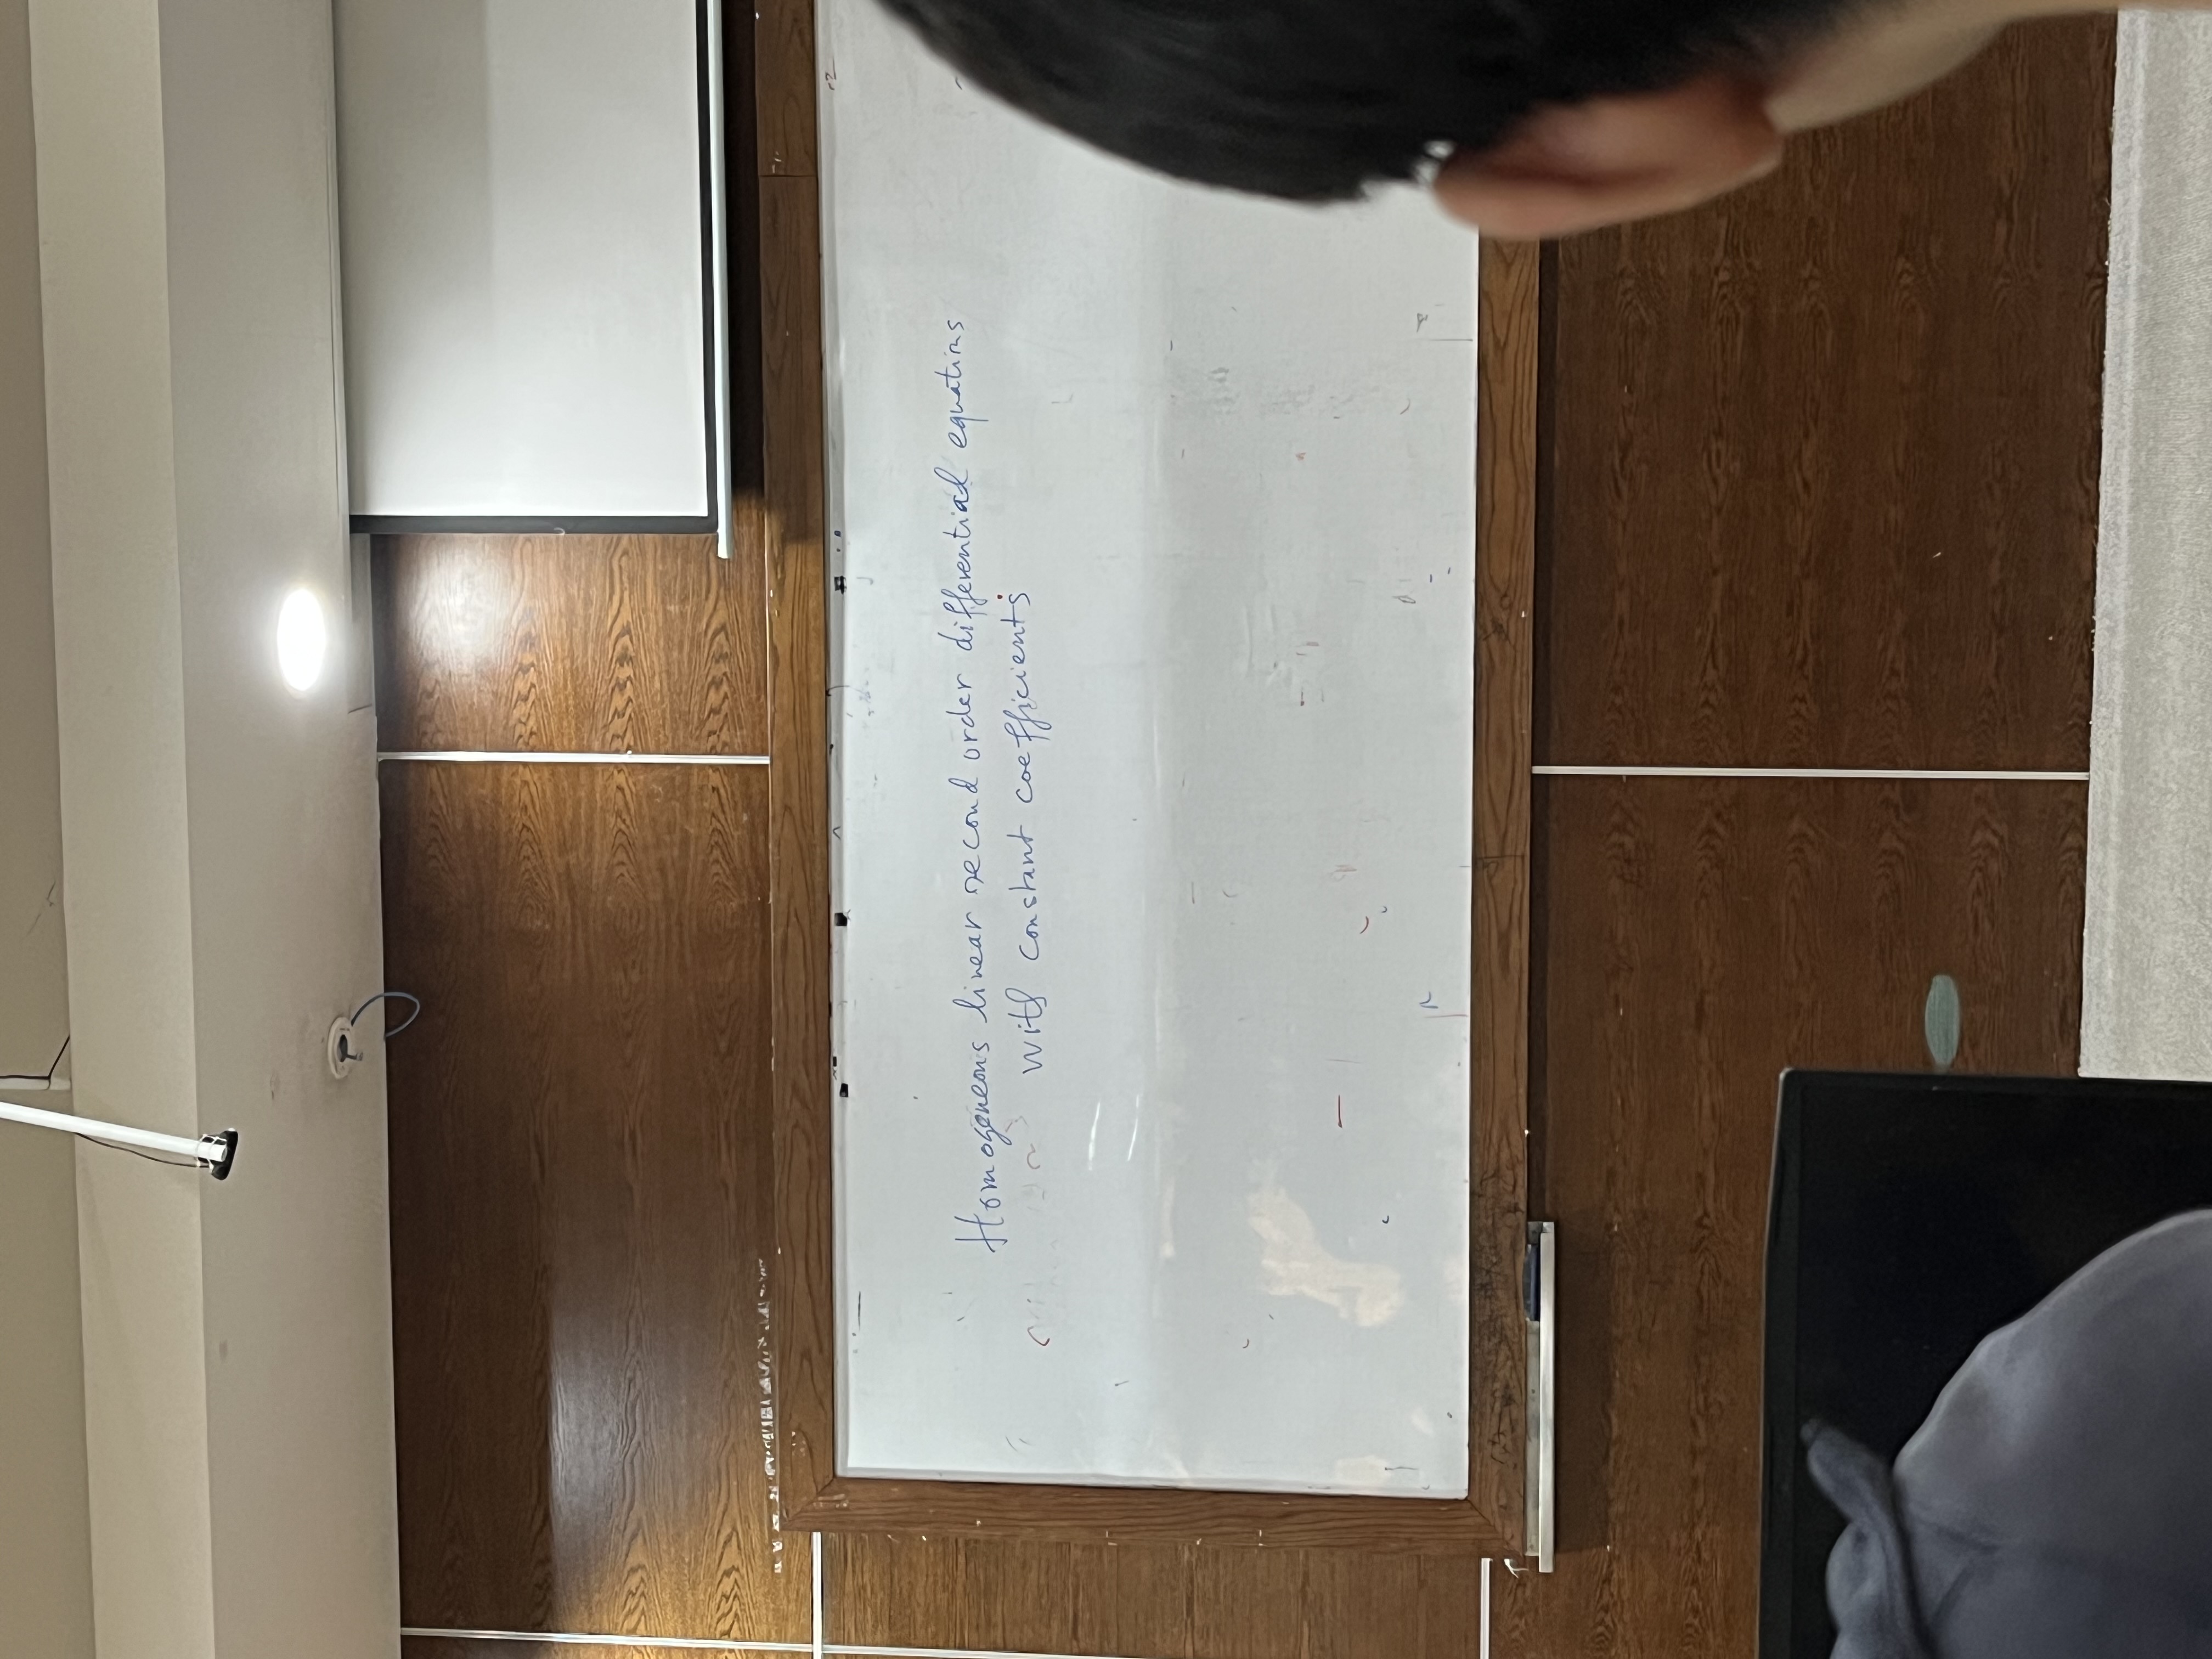 Homogeneous linear second order differential equations
with constant coefficients